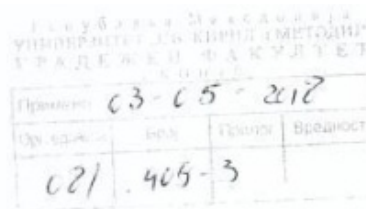 Република Македонија
УНИВЕРЗИТЕТ „СВ. КИРИЛ И МЕТОДИЈ“
ГРАДЕЖЕН ФАКУЛТЕТ
СКОПЈЕ
Примено: 03-05-2018
Орг. един. Број Прилог Вредност
021 405-3